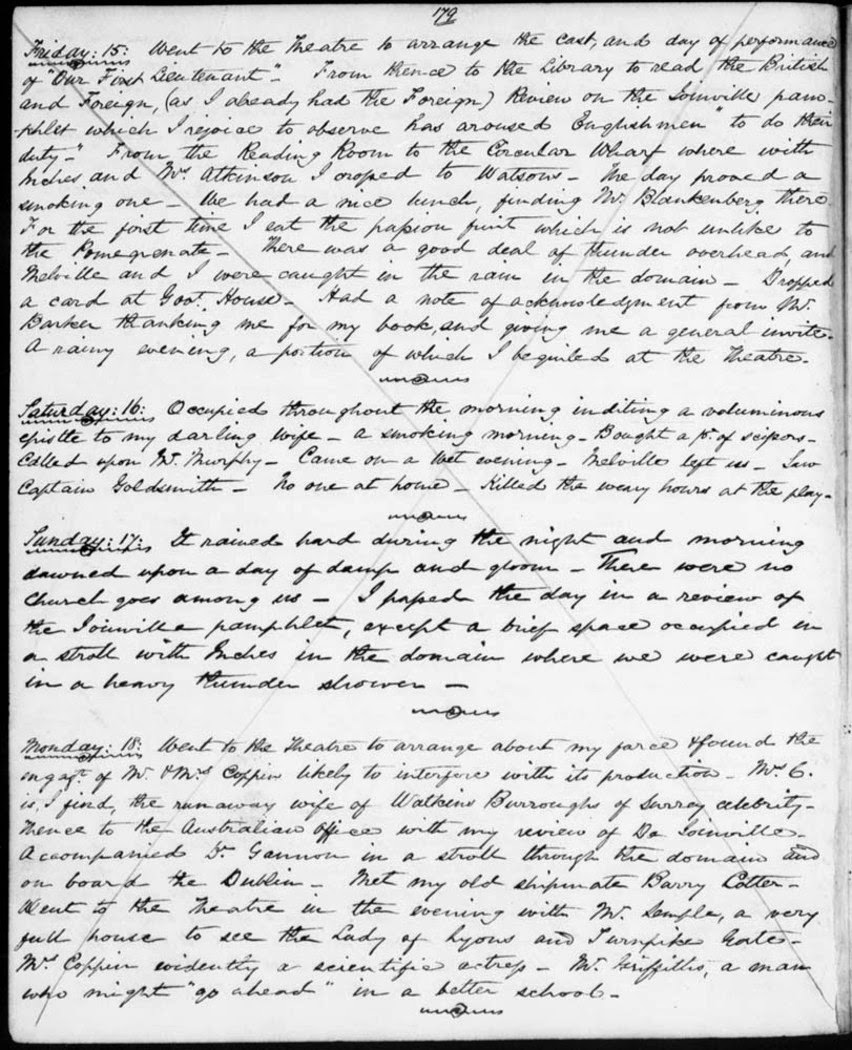 179
Friday: 15: Went to the Theatre to arrange the cast, and day of performance
of "Our First Lieutenant"- From thence to the Library to read the British
and Foreign, (as I already had the Foreign) Review on the Joinville pam-
-phlet which I rejoice to observe has aroused Englishmen "to do their
duty-" From the Reading Room to the Circular Wharf where with
Inches and Mr. Atkinson I croped to Watsons - The day proved a
smoking one - We had a nice lunch, finding Mr. Blankenberg there.
For the first time I eat the passion fruit which is not unlike to
the Pomegranate - There was a good deal of thunder overhead, and
Melville and I were caught in the rain in the domain - Dropped
a card at Govt. House - Had a note of acknowledgment from Mr.
Barker thanking me for my book, and giving me a general invite.
A rainy evening, a portion of which I beguiled at the Theatre.
Saturday: 16: Occupied throughout the morning inditing a voluminous
epistle to my darling wife - a smoking morning - Bought a pr. of scissors -
Called upon Mr. Murphy - Came on a wet evening - Melville left us - Saw
Captain Goldsmith - No one at home - Killed the weary hours at the play -
Sunday: 17: It rained hard during the night and morning
dawned upon a day of damp and gloom - There were no
Church goes among us - I passed the day in a review of
the Joinville pamphlet, except a brief space occupied in
a stroll with Inches in the domain where we were caught
in a heavy thunder shower -
Monday: 18: Went to the Theatre to arrange about my farce & found the
engagt. of Mr. & Mrs Coppin likely to interfere with its production - Mrs C.
is, I find, the runaway wife of Watkins Burroughs of Surrey celebrity -
Thence to the Australian Office with my review of De Joinville -
Accompanied Dr. Gannon in a stroll through the domain and
on board the Dublin - Met my old shipmate Barry Cotter -
Went to the Theatre in the evening with Mr. Semple, a very
full house to see the Lady of Lyons and Turnpike Gate -
Mrs Coppin evidently a scientific actress - Mr. Griffiths, a man
who might "go ahead" in a better school -